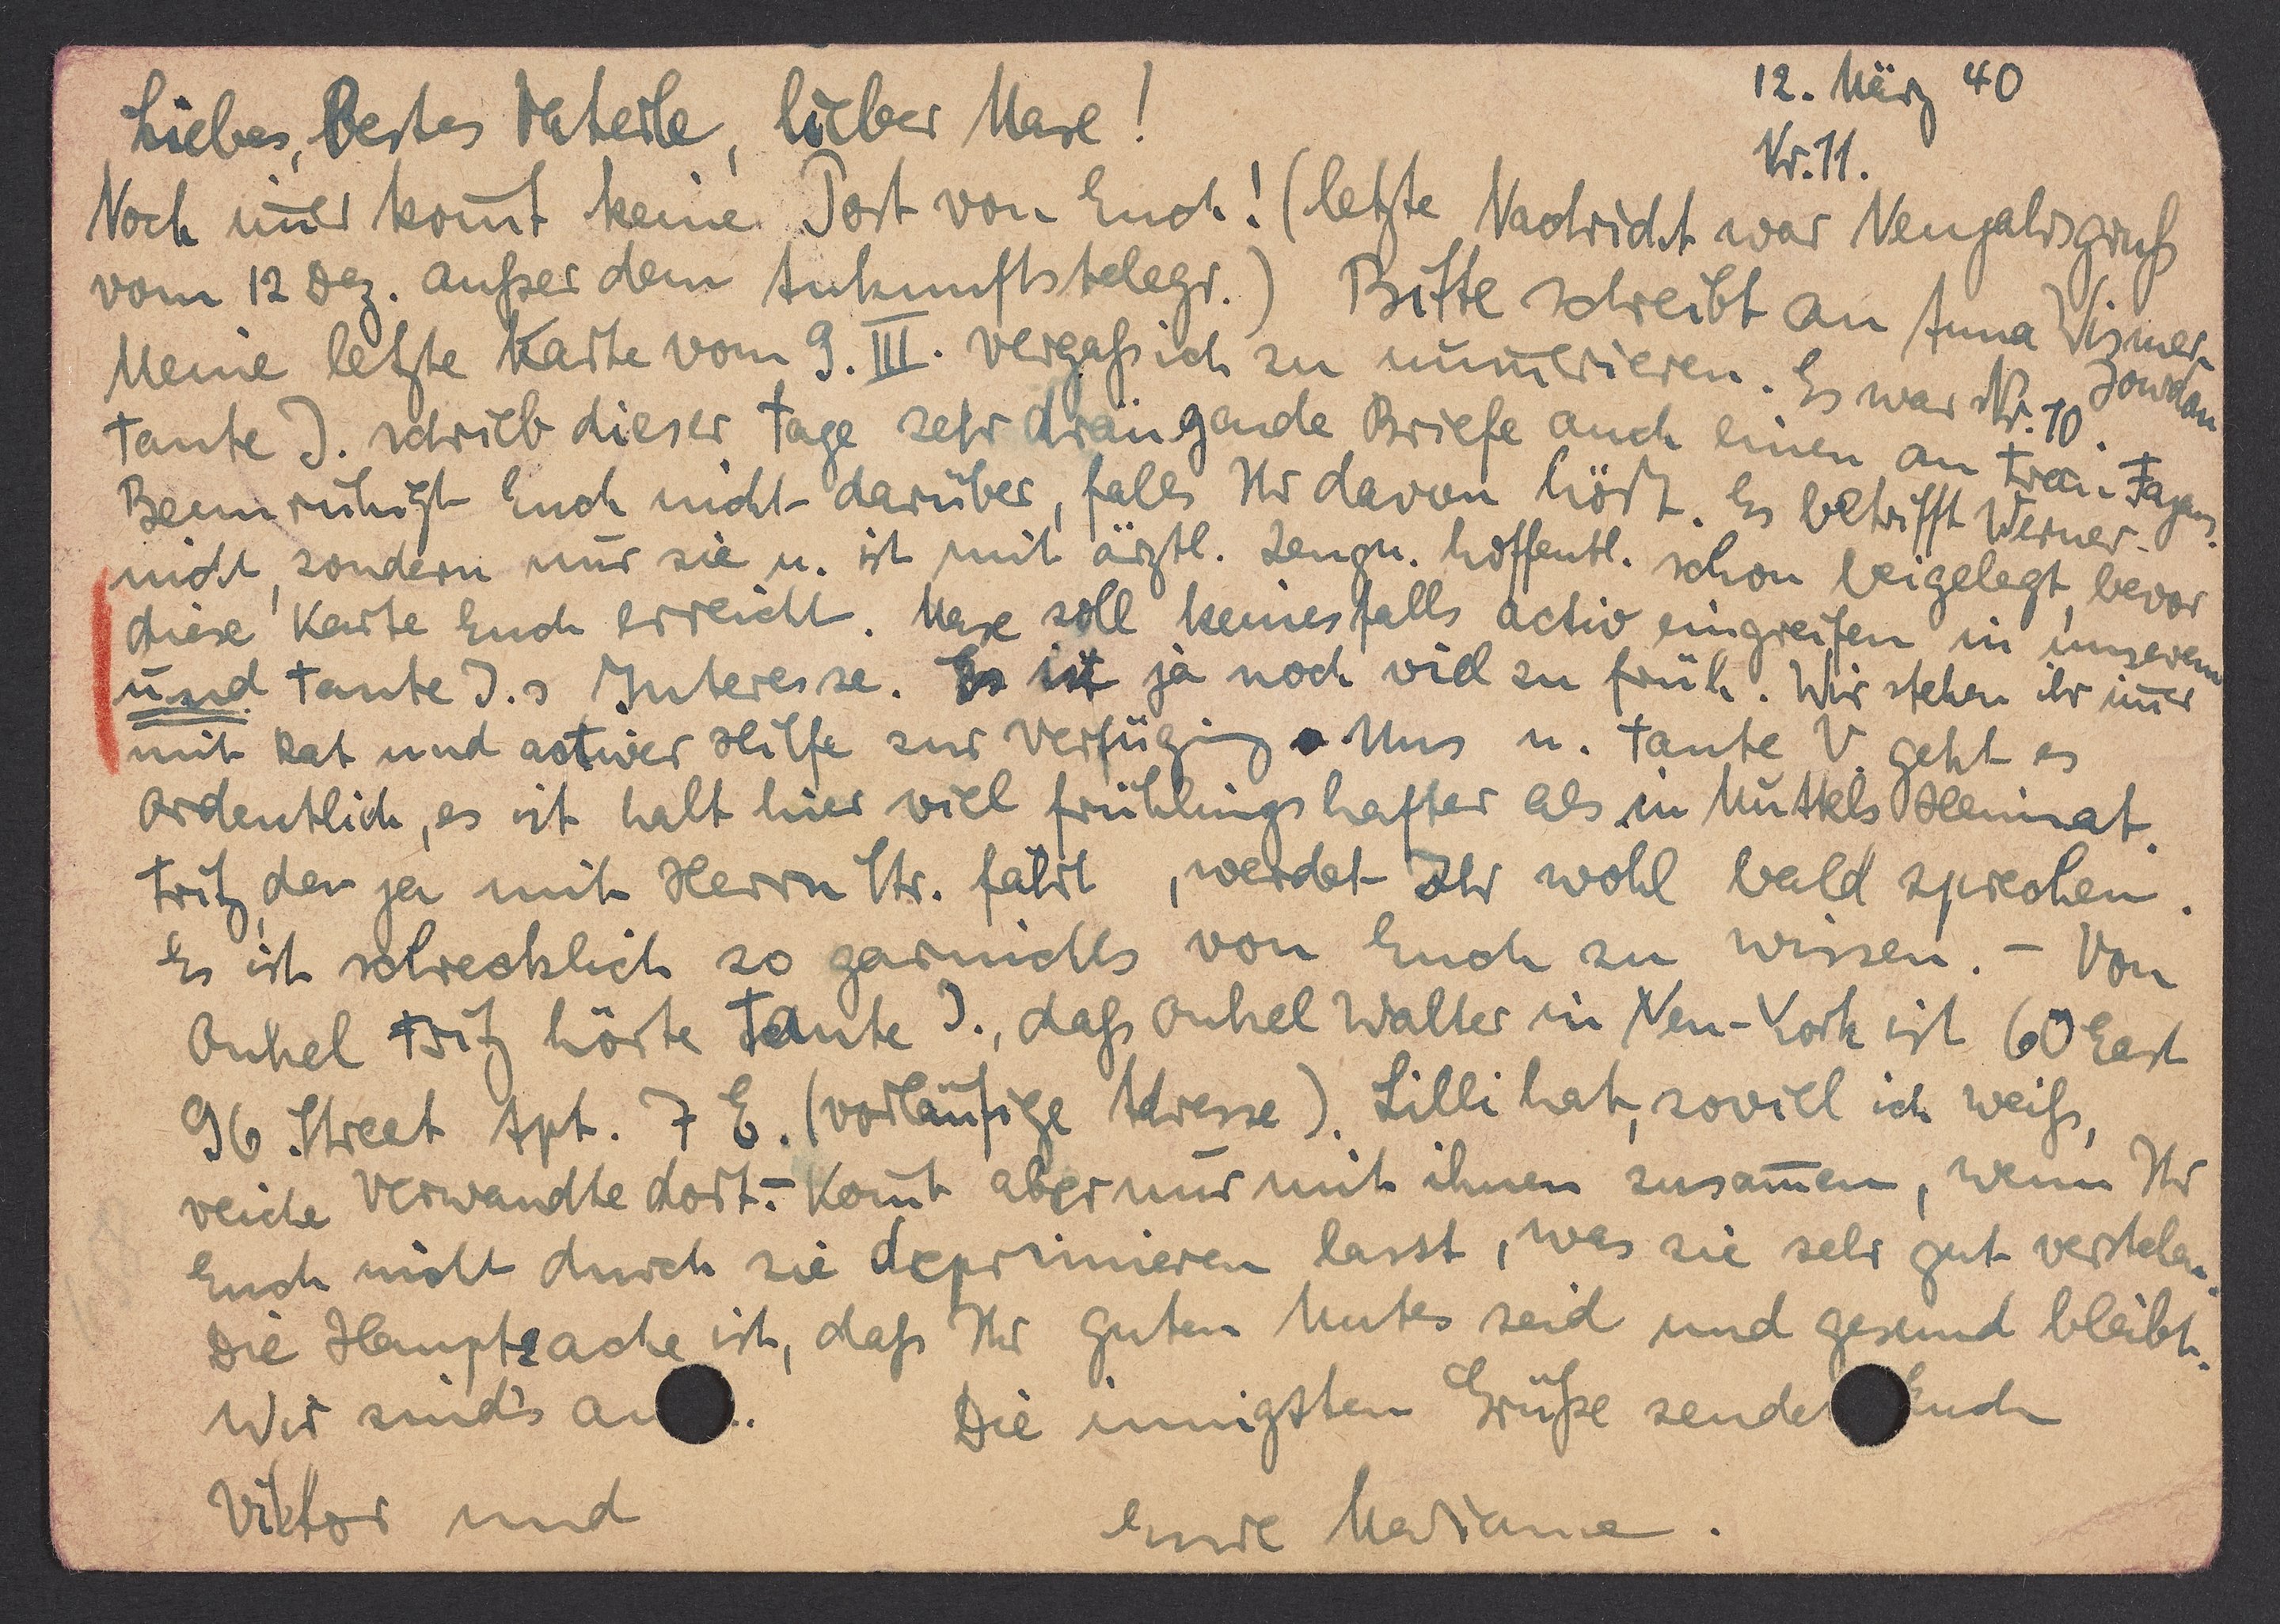 12. März 40
Nr. 11.
Liebes, bestes Vaterle, lieber Maxe!
Noch im̅er kom̅t keine Post von Euch! (letzte Nachricht war Neujahrsgruß
vom 12 Dez. außer dem Ankunftstelegr.) Bitte schreibt an Anna Wismer-
Jourdan
Meine letzte Karte vom 9. III. vergaß ich zu num̅erieren. Es war Nr. 10.
Tante J. schrieb dieser Tage sehr drängende Briefe auch einen an Frau Fajans.
Beunruhigt Euch nicht darüber, falls Ihr davon hört. Es betrifft Werner
nicht, sondern nur sie u. ist mit ärztl. Zeugn. hoffentl. schon beigelegt, bevor
diese Karte Euch erreicht. Maxe soll keinesfalls activ eingreifen in unserem
und Tante J.s Interesse. Es ist ja noch viel zu früh. Wir stehen ihr im̅er
mit Rat und activer Hilfe zur Verfügung. Uns u. Tante V. geht es
ordentlich, es ist halt hier viel frühlingshafter als in Muttels Heimat.
Fritz, der ja mit Herrn Str. fährt, werdet Ihr wohl bald sprechen.
Es ist schrecklich so garnichts von Euch zu wissen. – Von
Onkel Fritz hörte Tante J., daß Onkel Walter in New-York ist 60 East
96 Street Apt. 7 E. (vorläufige Adresse). Lilli hat, soviel ich weiß,
reiche Verwandte dort. – Kom̅t aber nur mit ihnen zusam̅en, wenn Ihr
Euch nicht durch sie deprimieren lasst, was sie sehr gut verstehn.
Die Hauptsache ist, daß Ihr guten Mutes seid und gesund bleibt.
Wir sind's au..
Die innigsten Grüße senden Euch
Viktor und
Eure Marianne.